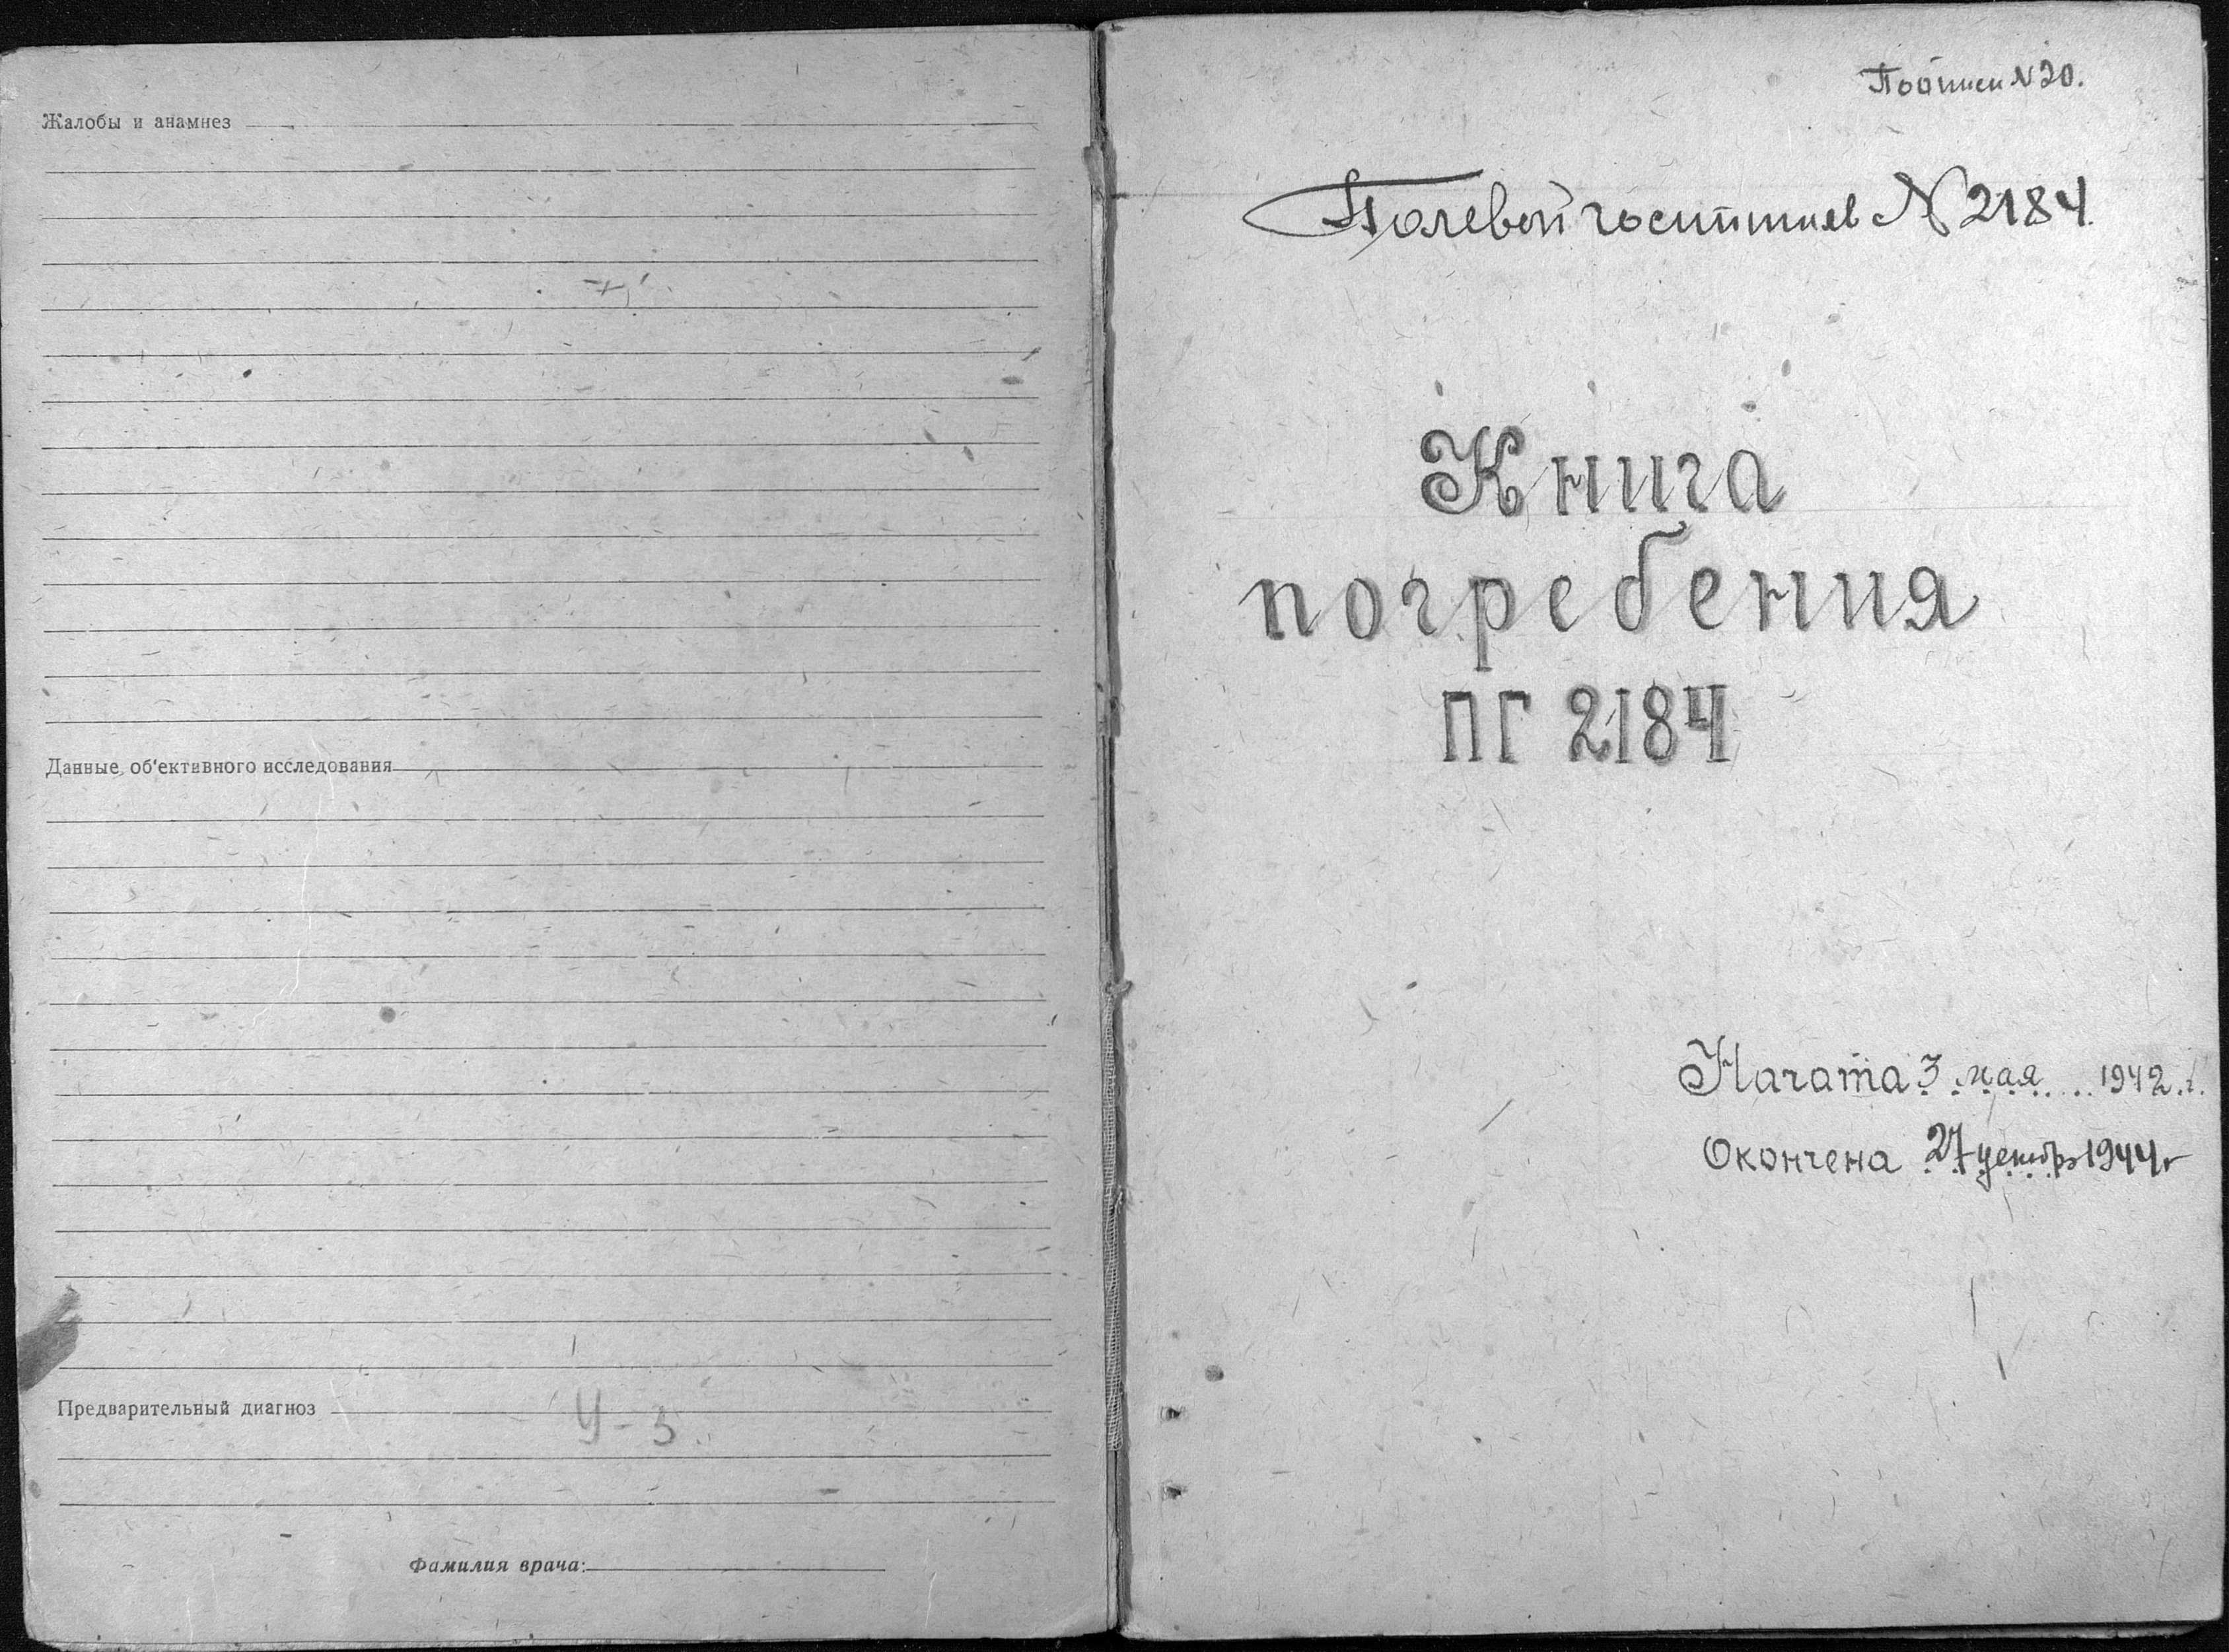 Жалобы и анамнез
Данные об'ективного исследования
Предварительный диагноз
У-3.
Фамилия врача:
По описи N 20.
Полевой госпиталь N 2184.
Книга
погребения
ПГ 2184
Начата 3 мая 1942 г.
Окончена 27 декабр 1944 г